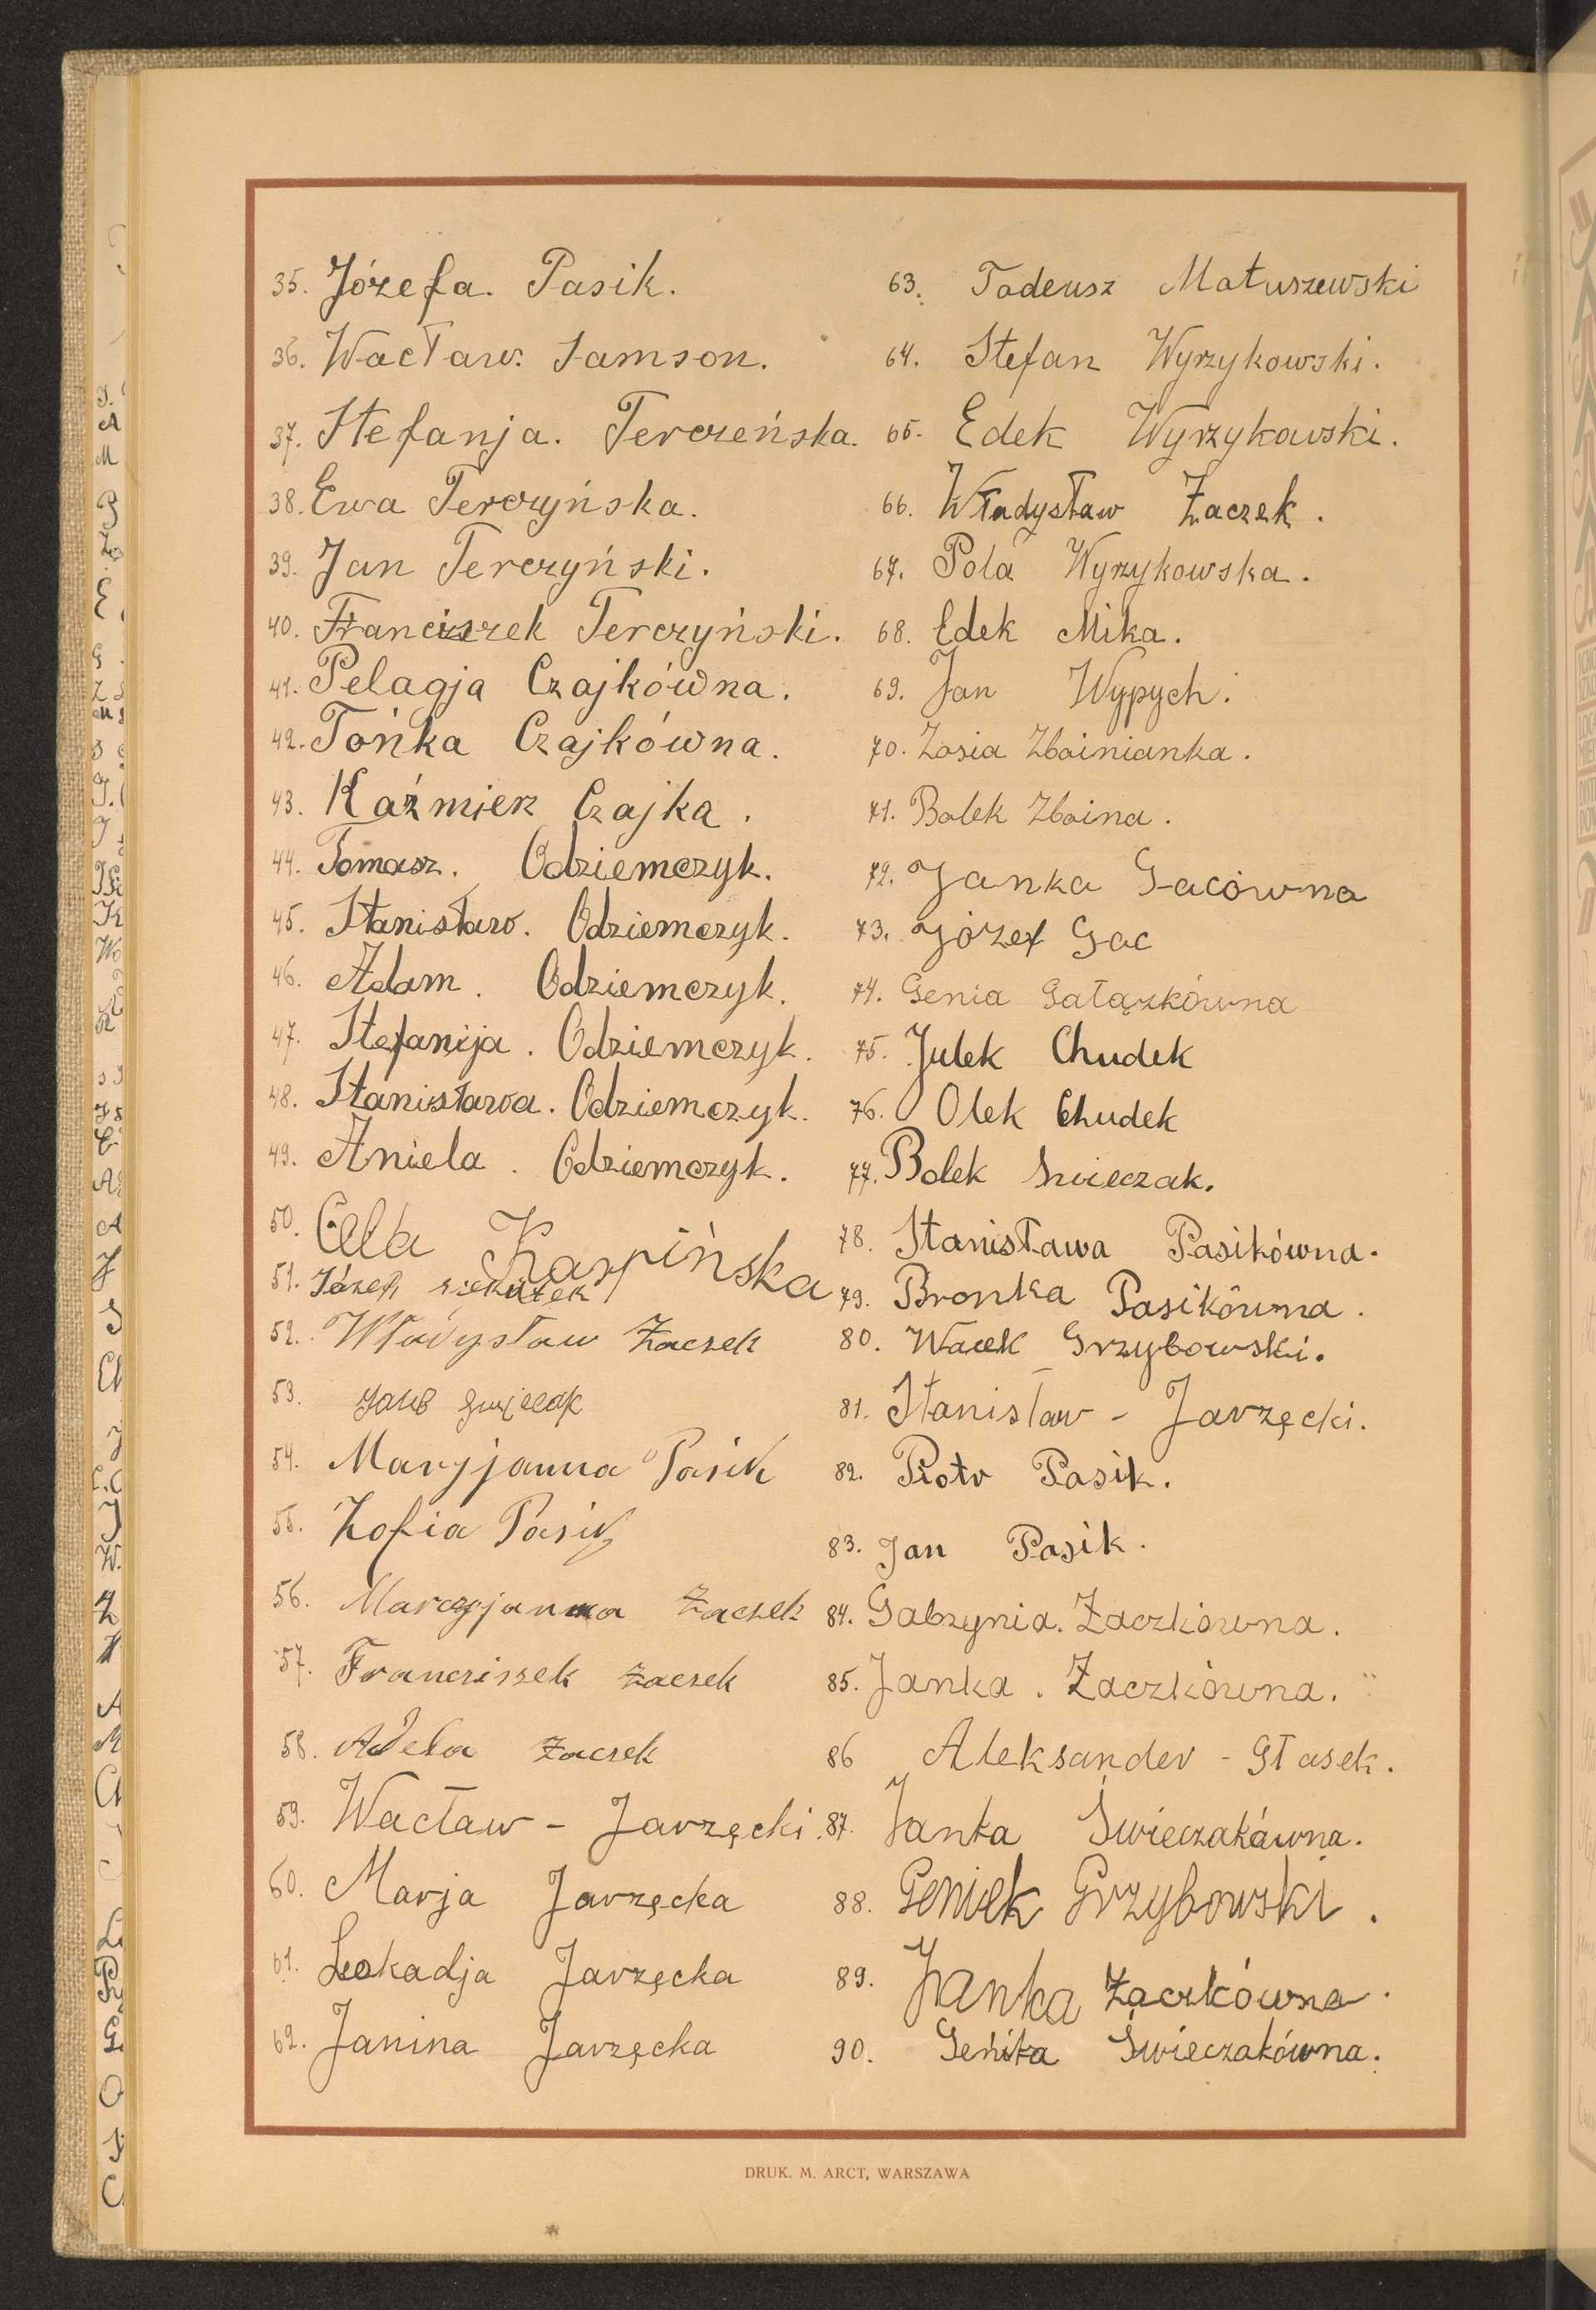 35. Józefa. Pasik.
36. Wacław. Samson.
37. Stefanja. Terczeńska.
38. Ewa Terczyńska.
39. Jan Terczyński.
40. Franciszek Terczyński.
41. Pelagja Czajkówna.
42. Tońka Czajkówna.
43. Kaźmierz Czajka.
44. Tomasz. Odziemczyk.
45. Stanisław. Odziemczyk.
46. Adam. Odziemczyk.
47. Stefanija. Odziemczyk.
48. Stanisława. Odziemczyk.
49. Aniela. Odziemczyk.
50. Cela Karpińska
51. Józef
52. Władysław Żaczek
53.
54. Maryjanna Pasik
55. Zofia Pasik
56. Marcyjanna Żaczek
57. Franciszek Żaczek
58. Adela Żaczek
59. Wacław - Jarzęcki.
60. Marja Jarzęcka
61. Leokadja Jarzęcka
62. Janina Jarzęcka
63. Tadeusz Matuszewski
64. Stefan Wyrzykowski.
65. Edek Wyrzykowski.
66. Władysław Żaczek.
67. Pola Wyrzykowska.
68. Edek Mika.
69. Jan Wypych.
70. Zosia Zboinianka.
71. Bolek Zboina.
72. Janka Gacówna
73. Józef Gac
74. Genia Gałązkówna
75. Julek Chudek
76. Olek Chudek
77. Bolek Świeczak.
78. Stanisława Pasikówna.
79. Bronka Pasikówna.
80. Wacek Grzybowski.
81. Stanisław - Jarzęcki.
82. Piotr Pasik.
83. Jan Pasik.
84. Gabzynia. Żaczkówna.
85. Janka. Żaczkówna.
86 Aleksander - Głasek.
87. Janka Świeczakówna.
88. Geniek Grzybowski.
89. Janka Żaczkówna.
90. Geńka Świeczakówna.
DRUK. M. ARCT, WARSZAWA